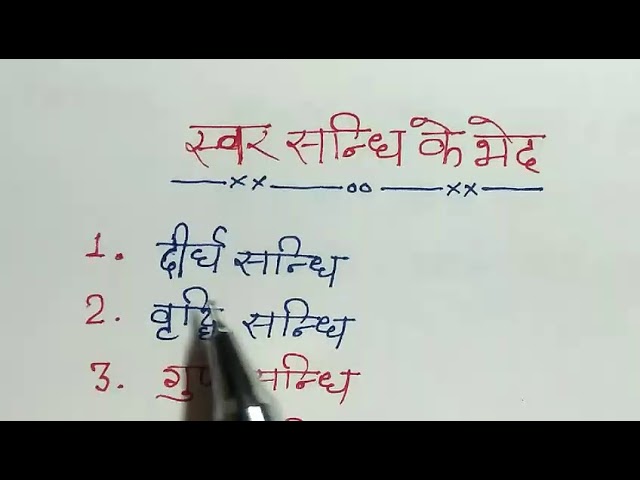 स्वर सन्धि के भेद
1. दीर्घ सन्धि
2. वृद्धि सन्धि
3. गुण सन्धि